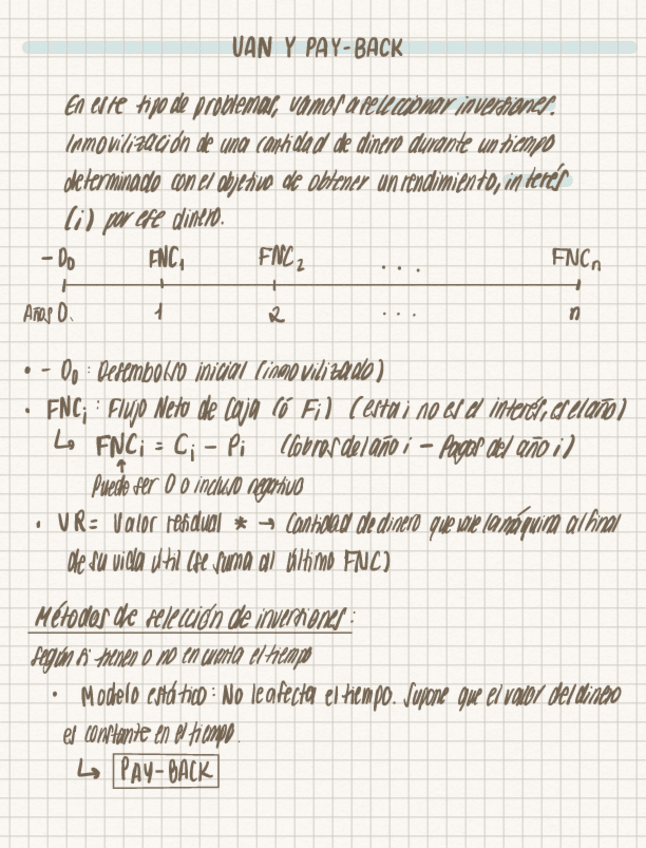 VAN Y PAY-BACK
En este tipo de problemas, vamos a seleccionar inversiones.
Inmovilización de una cantidad de dinero durante un tiempo
determinado con el objetivo de obtener un rendimiento, interés
(i) por ese dinero.
- D₀ FNC₁ FNC₂ . . . FNCₙ
Años 0. 1 2 . . . n
• - D₀ : Desembolso inicial (inmovilizado)
• FNCᵢ : Flujo Neto de Caja (ó Fᵢ) (esta i no es el interés, es el año)
↳ FNCᵢ = Cᵢ - Pᵢ (Cobros del año i - Pagos del año i)
↑
Puede ser 0 o incluso negativo
• VR = Valor residual * → Cantidad de dinero que vale la máquina al final
de su vida útil (se suma al último FNC)
Métodos de selección de inversiones:
según si tienen o no en cuenta el tiempo
• Modelo estático: No le afecta el tiempo. Supone que el valor del dinero
es constante en el tiempo.
↳ PAY-BACK